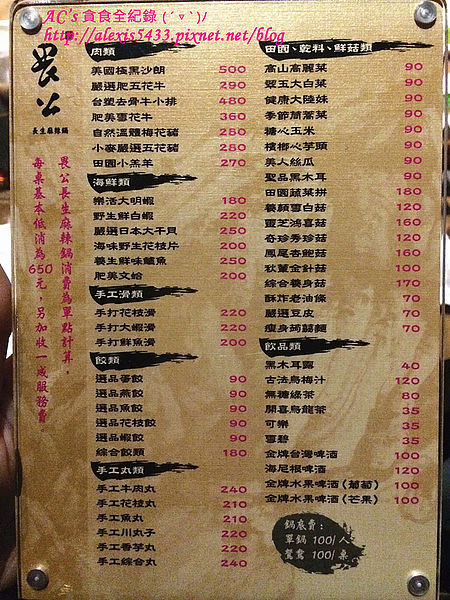 AC's 貪食全紀錄 (´▽`)ﾉ
http://alexis5433.pixnet.net/blog
畏公
長生麻辣鍋
畏公長生麻辣鍋消費為單點計算，
每桌基本低消為650元，另加收一成服務費。
肉類
美國極黑沙朗 500
嚴選肥五花牛 290
台塑去骨牛小排 480
肥美雪花牛 360
自然溫體梅花豬 280
小麥嚴選五花豬 280
田園小羔羊 270
海鮮類
樂活大明蝦 180
野生鮮白蝦 220
嚴選日本大干貝 250
海味野生花枝片 200
養生鮮味鱸魚 250
肥美文蛤 200
手工滑類
手打花枝滑 220
手打大蝦滑 220
手打鮮魚滑 200
餃類
選品蛋餃 90
選品燕餃 90
選品魚餃 90
選品花枝餃 90
選品蝦餃 90
綜合餃類 180
手工丸類
手工牛肉丸 240
手工花枝丸 210
手工魚丸 210
手工川丸子 220
手工香芋丸 220
手工綜合丸 240
田園、乾料、鮮菇類
高山高麗菜 90
翠玉大白菜 90
健康大陸妹 90
季節時蔬菜 90
糖心玉米 90
檳榔心芋頭 90
美人絲瓜 90
聖品黑木耳 90
田園蔬菜拼 180
養顏雪白菇 120
靈芝鴻喜菇 160
奇珍秀珍菇 120
鳳尾杏鮑菇 160
秋葉金針菇 100
綜合養身菇 170
酥炸老油條 70
嚴選豆皮 70
瘦身蒟蒻麵 70
飲品類
黑木耳露 40
古法烏梅汁 120
無糖綠茶 80
開喜烏龍茶 35
可樂 35
雪碧 35
金牌台灣啤酒 100
海尼根啤酒 120
金牌水果啤酒(葡萄) 100
金牌水果啤酒(芒果) 100
鍋底費：
單鍋 100/人
鴛鴦 100/桌